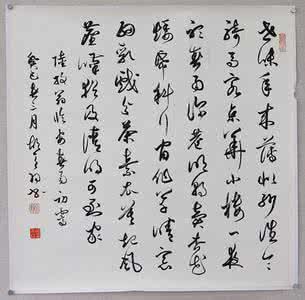 世味年來薄似紗誰令
騎馬客京華小樓一夜
聽春雨深巷明朝賣杏花
矮紙斜行閒作草晴窗
細乳戲分茶素衣莫起風
塵嘆猶及清明可到家
陸放翁臨安春雨初霽
癸巳春三月